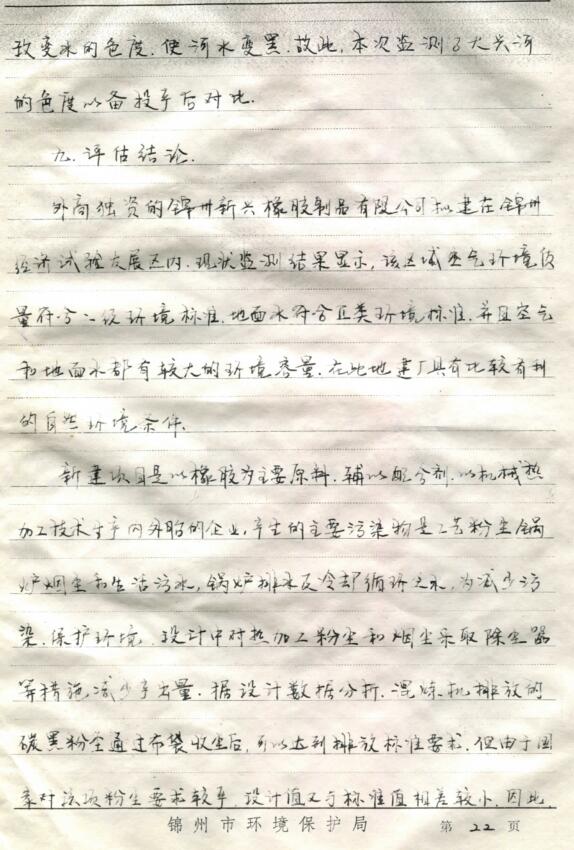 致变水的色度.使河水变黑.故此,本次监测了大兴河
的色度以备投产后对比.
九.评估结论.
外商独资的锦州新兴橡胶制品有限公司拟建在锦州
经济试验发展区内.现状监测结果显示,该区域空气环境质
量符合二级环境标准.地面水符合Ⅲ类环境标准.并且空气
和地面水都有较大的环境容量.在此地建厂具有比较有利
的自然环境条件.
新建项目是以橡胶为主要原料.辅以配合剂.以机械热
加工技术生产内外胎的企业,产生的主要污染物是工艺粉尘锅
炉烟尘和生活污水,锅炉排水及冷却循环之水,为减少污
染.保护环境.设计中对热加工粉尘和烟尘采取除尘器
等措施减少产出量.据设计数据分析.混炼机排放的
碳黑粉尘通过布袋收尘后,可以达到排放标准要求.但由于国
家对该项粉尘要求较严,设计值又与标准值相差较小.因此,
锦州市环境保护局 第 22 页